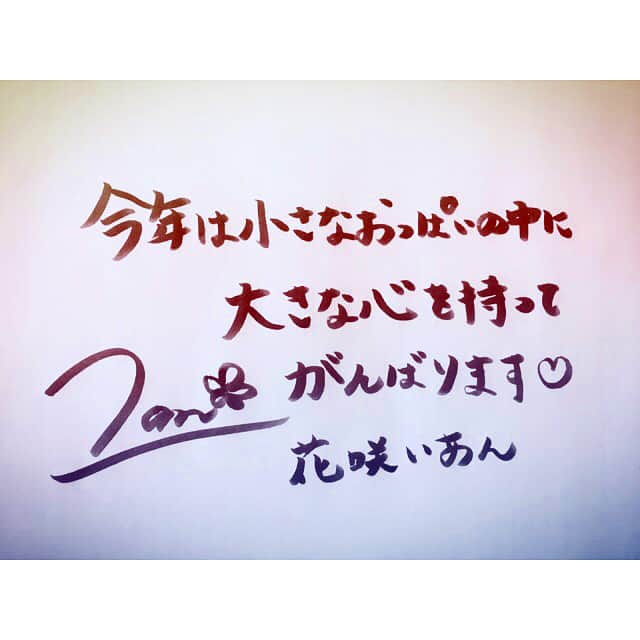 今年は小さなおっぱいの中に
大きな心を持って
がんばります♡
Ian
花咲いあん